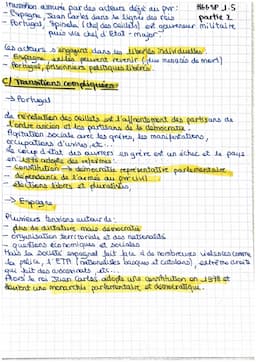 Transition assuré par des acteurs déjà au pvr:
HGGSP 1.S
- Espagne, Juan Carlos dans la lignée des rois
partie 2
- Portugal, Spinola (chef des oeillets) est gouverneur militaire
puis vis chef d'Etat-major
Les acteurs s'engagent dans les libertés individuelles
- Espagne, exilés peuvent revenir (plus menacés de mort)
- Portugal, prisonniers politiques libérés
C/ Transitions compliquées
→ Portugal
La révolution des Oeillets est l'affrontement des partisans de
l'ordre ancien et les partisans de la démocratie.
Agitation sociale avec les grèves, les manifestations,
occupations d'usines, etc...
Le coup d'état des ouvriers en grève est un échec et le pays
en 1976 adopte des réformes:
- Constitution → démocratie représentative parlementaire
- dépendance de l'armée au pvr civil
- élections libres et pluralistes
→ Espagne
Plusieurs tensions autour de:
- plus de dictature mais démocratie
- organisation territoriale et ses nationalités
- questions économiques et sociales
Mais la société espagnol fait face à de nombreuses violences comme
la police, l'ETA (nationalistes basques et catalans), extrême droite
qui fait des assassinats, etc...
Alors le roi Juan Carlos adopte une constitution en 1978 et
devient une monarchie parlementaire et démocratique.